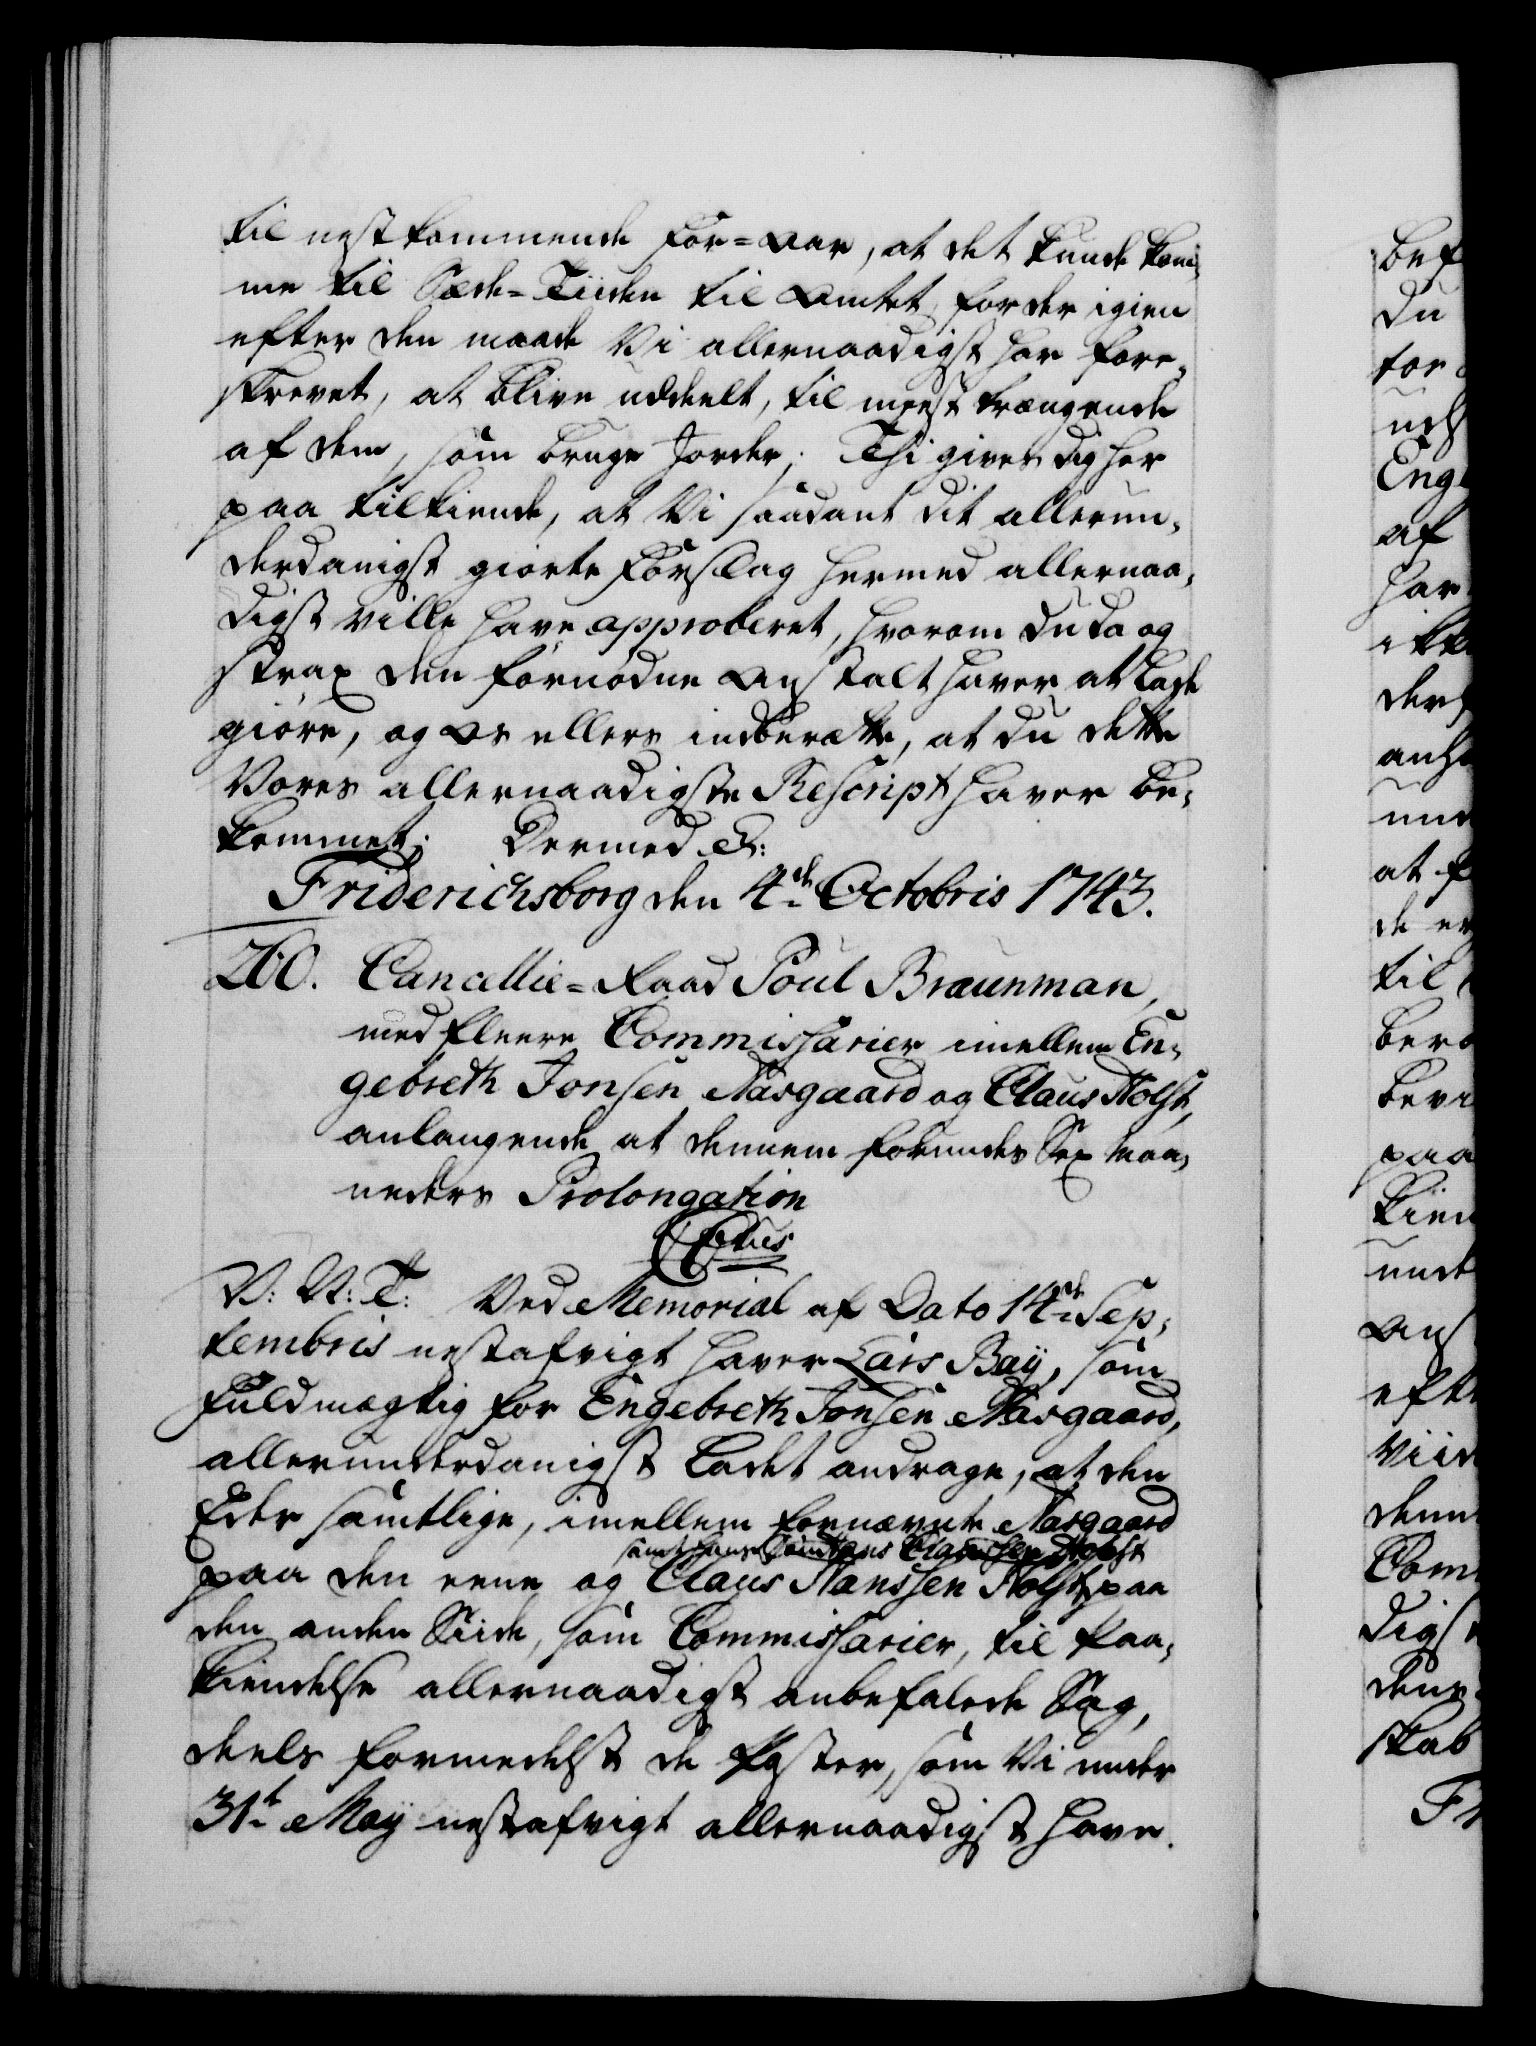 til nestkommende For-Aar, at det kunde kom¬
me til Sæde-Tiiden til Amtet, for der igien
efter den maade Vi allernaadigst har fore¬
skrevet, at blive uddeelt, til meest trængende
af dem, som bruge Jorder; Thi gives dig her
paa tilkiende, at Vi saadant dit allerun¬
derdanigst giorte Forslag hermed allernaa¬
digst ville have approberet, hvorom du da og
strax den fornødne Anstalt haver at lade
giøre, og Os ellers indberette, at du dette
Vores allernaadigste Rescript haver be¬
kommet; Dermed &:
Friderichsborg den 4de Octobris 1743.
260. Cancellie-Raad Poul Braunman,
med fleere Commissarier imellem En¬
gebreth Jonsen Aasgaard og Claus Holst,
anlangende at dennem forundes Sex Maa¬
neders Prolongation
V: V: T: Ved Memorial af Dato 14de Sep¬
tembris nestafvigt haver Lars Baÿ, som
Fuldmægtig for Engebreth Jonsen Aasgaard,
allerunderdanigst ladet andrage, at den
Eder samtlige, imellem fornævnte Aasgaard
samt hans Søn Hans Claussen Holst
paa den eene og Claus Hanssen Holst, paa
den anden Siide, som Commissarier, til Paa¬
kiendelse allernaadigst anbefalede Sag,
deels formedelst de Poster, som Vi under
31te Maÿ nestafvigt allernaadigst have